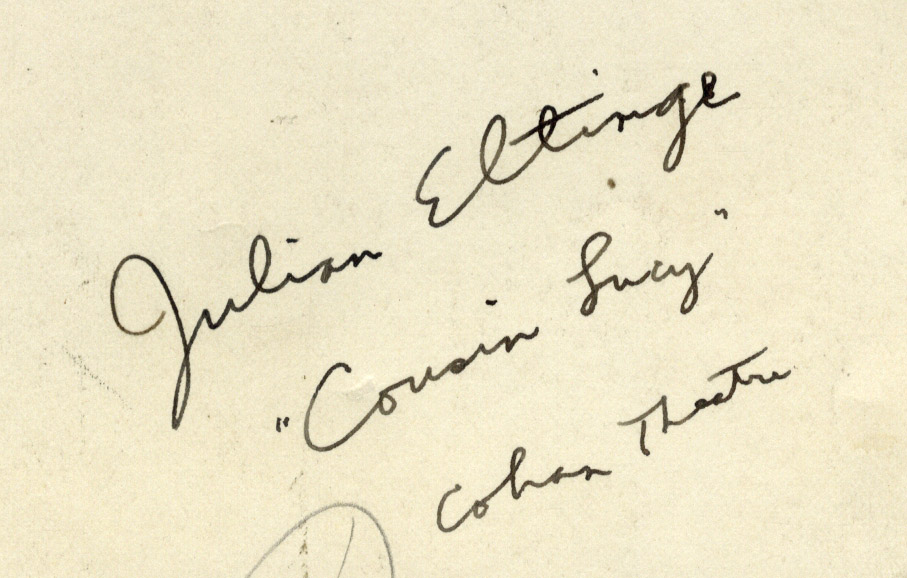 Julian Eltinge
"Cousin Lucy"
Cohan Theatre